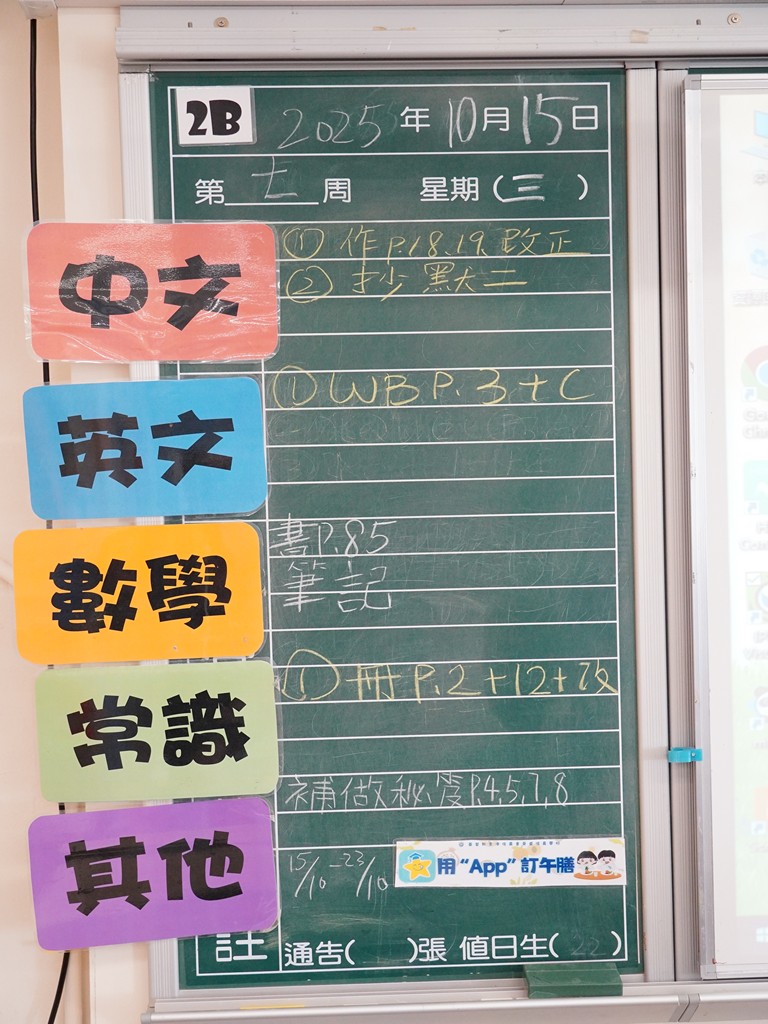 2B 2025年10月15日
第七周 星期(三)
中文
① 作P.18.19.改正
② 抄默大二
英文
① WB P.3+C
數學
書P.85
筆記
常識
① 冊P.2+12+改
其他
補做秘笈P.4,5,7,8
15/10-23/10
用“App”訂午膳
註 通告( )張 值日生(22)